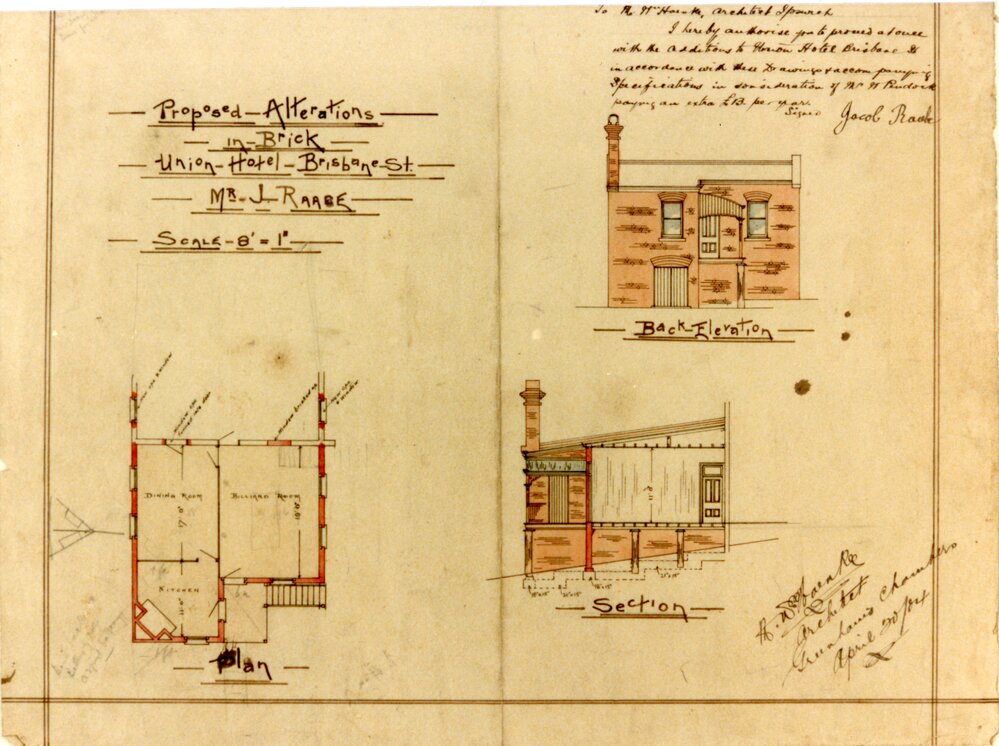 To R W Hoenke, Architect Ipswich
I hereby authorise you to proceed at once
with the additions to Union Hotel Brisbane St
in accordance with these Drawings & accompanying
Specifications in consideration of Mr W
paying an extra per year.
Signed Jacob Raabe
Proposed Alterations
in Brick
Union Hotel Brisbane St.
Mr J. Raabe
Scale 8' = 1"
Back Elevation
Dining Room
Billiard Room
17'.0"
Kitchen
Plan
11'.0"
18"x18"
Section
Architect
Greenham's Chambers
April 20/04